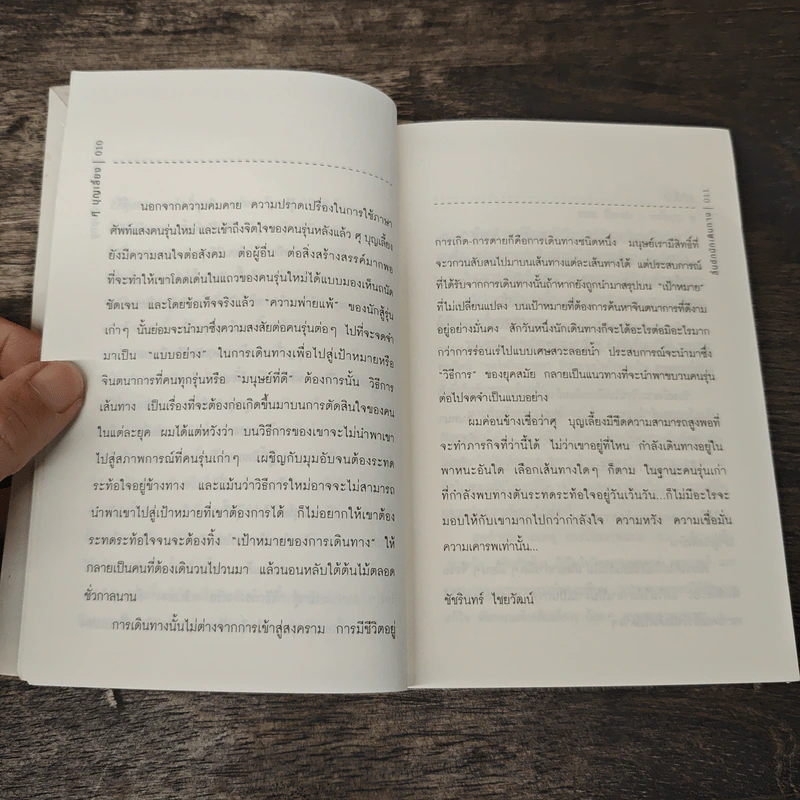 ศุ บุญเลี้ยง | 010
นอกจากความคมคาย ความปราดเปรื่องในการใช้ภาษา
ศัพท์แสงคนรุ่นใหม่ และเข้าถึงจิตใจของคนรุ่นหลังแล้ว ศุ บุญเลี้ยง
ยังมีความสนใจต่อสังคม ต่อผู้อื่น ต่อสิ่งสร้างสรรค์มากพอ
ที่จะทำให้เขาโดดเด่นในแถวของคนรุ่นใหม่ได้แบบมองเห็นถนัด
ชัดเจน และโดยข้อเท็จจริงแล้ว "ความพ่ายแพ้" ของนักสู้รุ่น
เก่าๆ นั้นย่อมจะนำมาซึ่งความสงสัยต่อคนรุ่นต่อๆ ไปที่จะจดจำ
มาเป็น "แบบอย่าง" ในการเดินทางเพื่อไปสู่เป้าหมายหรือ
จินตนาการที่คนทุกรุ่นหรือ "มนุษย์ที่ดี" ต้องการนั้น วิธีการ
เส้นทาง เป็นเรื่องที่จะต้องก่อเกิดขึ้นมาบนการตัดสินใจของคน
ในแต่ละยุค ผมได้แต่หวังว่า บนวิธีการของเขาจะไม่นำพาเขา
ไปสู่สภาพการณ์ที่คนรุ่นเก่าๆ เผชิญกับมุมอับจนต้องระทด
ระท้อใจอยู่ข้างทาง และแม้นว่าวิธีการใหม่อาจจะไม่สามารถ
นำพาเขาไปสู่เป้าหมายที่เขาต้องการได้ ก็ไม่อยากให้เขาต้อง
ระทดระท้อใจจนจะต้องทิ้ง "เป้าหมายของการเดินทาง" ให้
กลายเป็นคนที่ต้องเดินวนไปวนมา แล้วนอนหลับใต้ต้นไม้ตลอด
ชั่วกาลนาน
การเดินทางนั้นไม่ต่างจากการเข้าสู่สงคราม การมีชีวิตอยู่
การเกิด-การตายก็คือการเดินทางชนิดหนึ่ง มนุษย์เรามีสิทธิ์ที่
จะวกวนสับสนไปมาบนเส้นทางแต่ละเส้นทางได้ แต่ประสบการณ์
ที่ได้รับจากการเดินทางนั้นถ้าหากยังถูกนำมาสรุปบน "เป้าหมาย"
ที่ไม่เปลี่ยนแปลง บนเป้าหมายที่ต้องการค้นหาจินตนาการที่ดีงาม
อยู่อย่างมั่นคง สักวันหนึ่งนักเดินทางก็จะได้อะไรต่อมิอะไรมาก
กว่าการร่อนเร่ไปแบบเศษสวะลอยน้ำ ประสบการณ์จะนำมาซึ่ง
"วิธีการ" ของยุคสมัย กลายเป็นแนวทางที่จะนำพาขบวนคนรุ่น
ต่อไปจดจำเป็นแบบอย่าง
ผมค่อนข้างเชื่อว่าศุ บุญเลี้ยงมีขีดความสามารถสูงพอที่
จะทำภารกิจที่ว่านี้ได้ ไม่ว่าเขาอยู่ที่ไหน กำลังเดินทางอยู่ใน
พาหนะอันใด เลือกเส้นทางใดๆ ก็ตาม ในฐานะคนรุ่นเก่า
ที่กำลังพบทางตันระทดระท้อใจอยู่วันเว้นวัน...ก็ไม่มีอะไรจะ
มอบให้กับเขามากไปกว่ากำลังใจ ความหวัง ความเชื่อมั่น
ความเคารพเท่านั้น...
ชัชรินทร์ ไชยวัฒน์